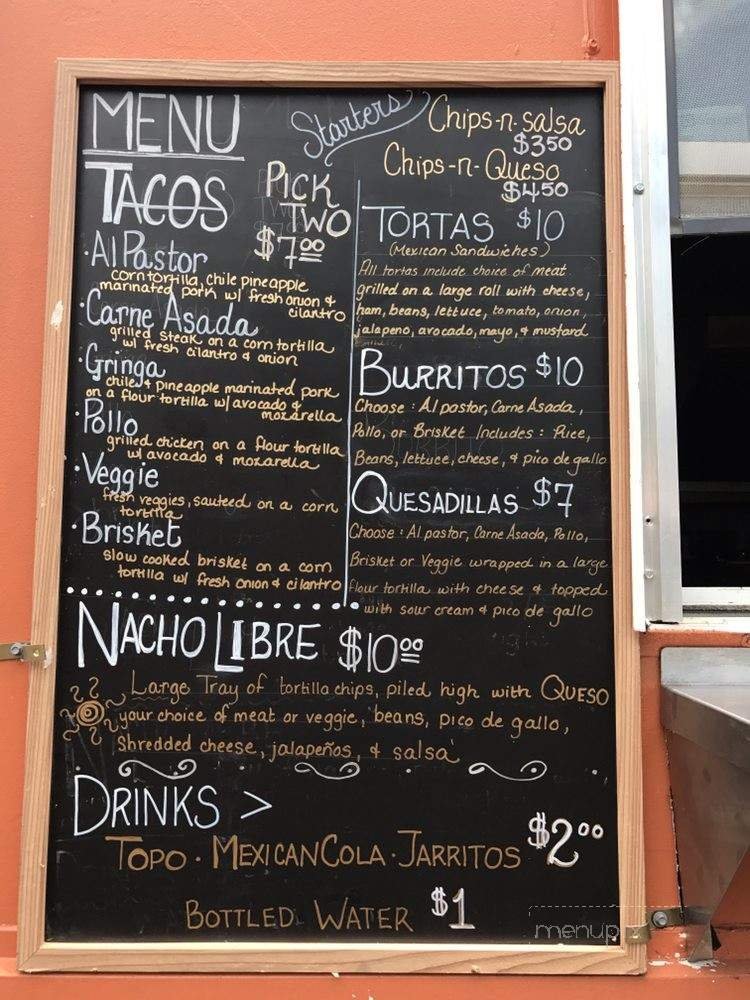 MENU
Starters
Chips-n-salsa
$3.50
Chips-n-Queso
$4.50
TACOS
PICK
TWO
$7.00
·Al Pastor
corn tortilla, chile pineapple
marinated pork w/ fresh onion &
cilantro
·Carne Asada
grilled steak on a corn tortilla
w/ fresh cilantro & onion
·Gringa
chile & pineapple marinated pork
on a flour tortilla w/ avocado &
mozarella
·Pollo
grilled chicken on a flour tortilla
w/ avocado & mozarella
·Veggie
fresh veggies, sauteed on a corn
tortilla
·Brisket
slow cooked brisket on a corn
tortilla w/ fresh onion & cilantro
TORTAS $10
(Mexican Sandwiches)
All tortas include choice of meat
grilled on a large roll with cheese,
ham, beans, lettuce, tomato, onion,
jalapeno, avocado, mayo, & mustard
BURRITOS $10
Choose: Al pastor, Carne Asada,
Pollo, or Brisket Includes: Rice,
Beans, lettuce, cheese, & pico de gallo
QUESADILLAS $7
Choose: Al pastor, Carne Asada, Pollo,
Brisket or Veggie wrapped in a large
flour tortilla with cheese & topped
with sour cream & pico de gallo
NACHO LIBRE $10.00
Large Tray of tortilla chips, piled high with QUESO
your choice of meat or veggie, beans, pico de gallo,
shredded cheese, jalapeños, & salsa
DRINKS >
TOPO · MEXICAN COLA · JARRITOS $2.00
BOTTLED WATER $1
menup